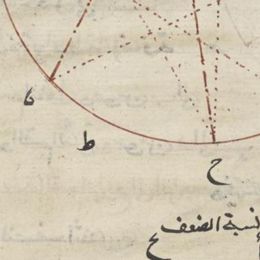 ط
ح
نسبة الضعف